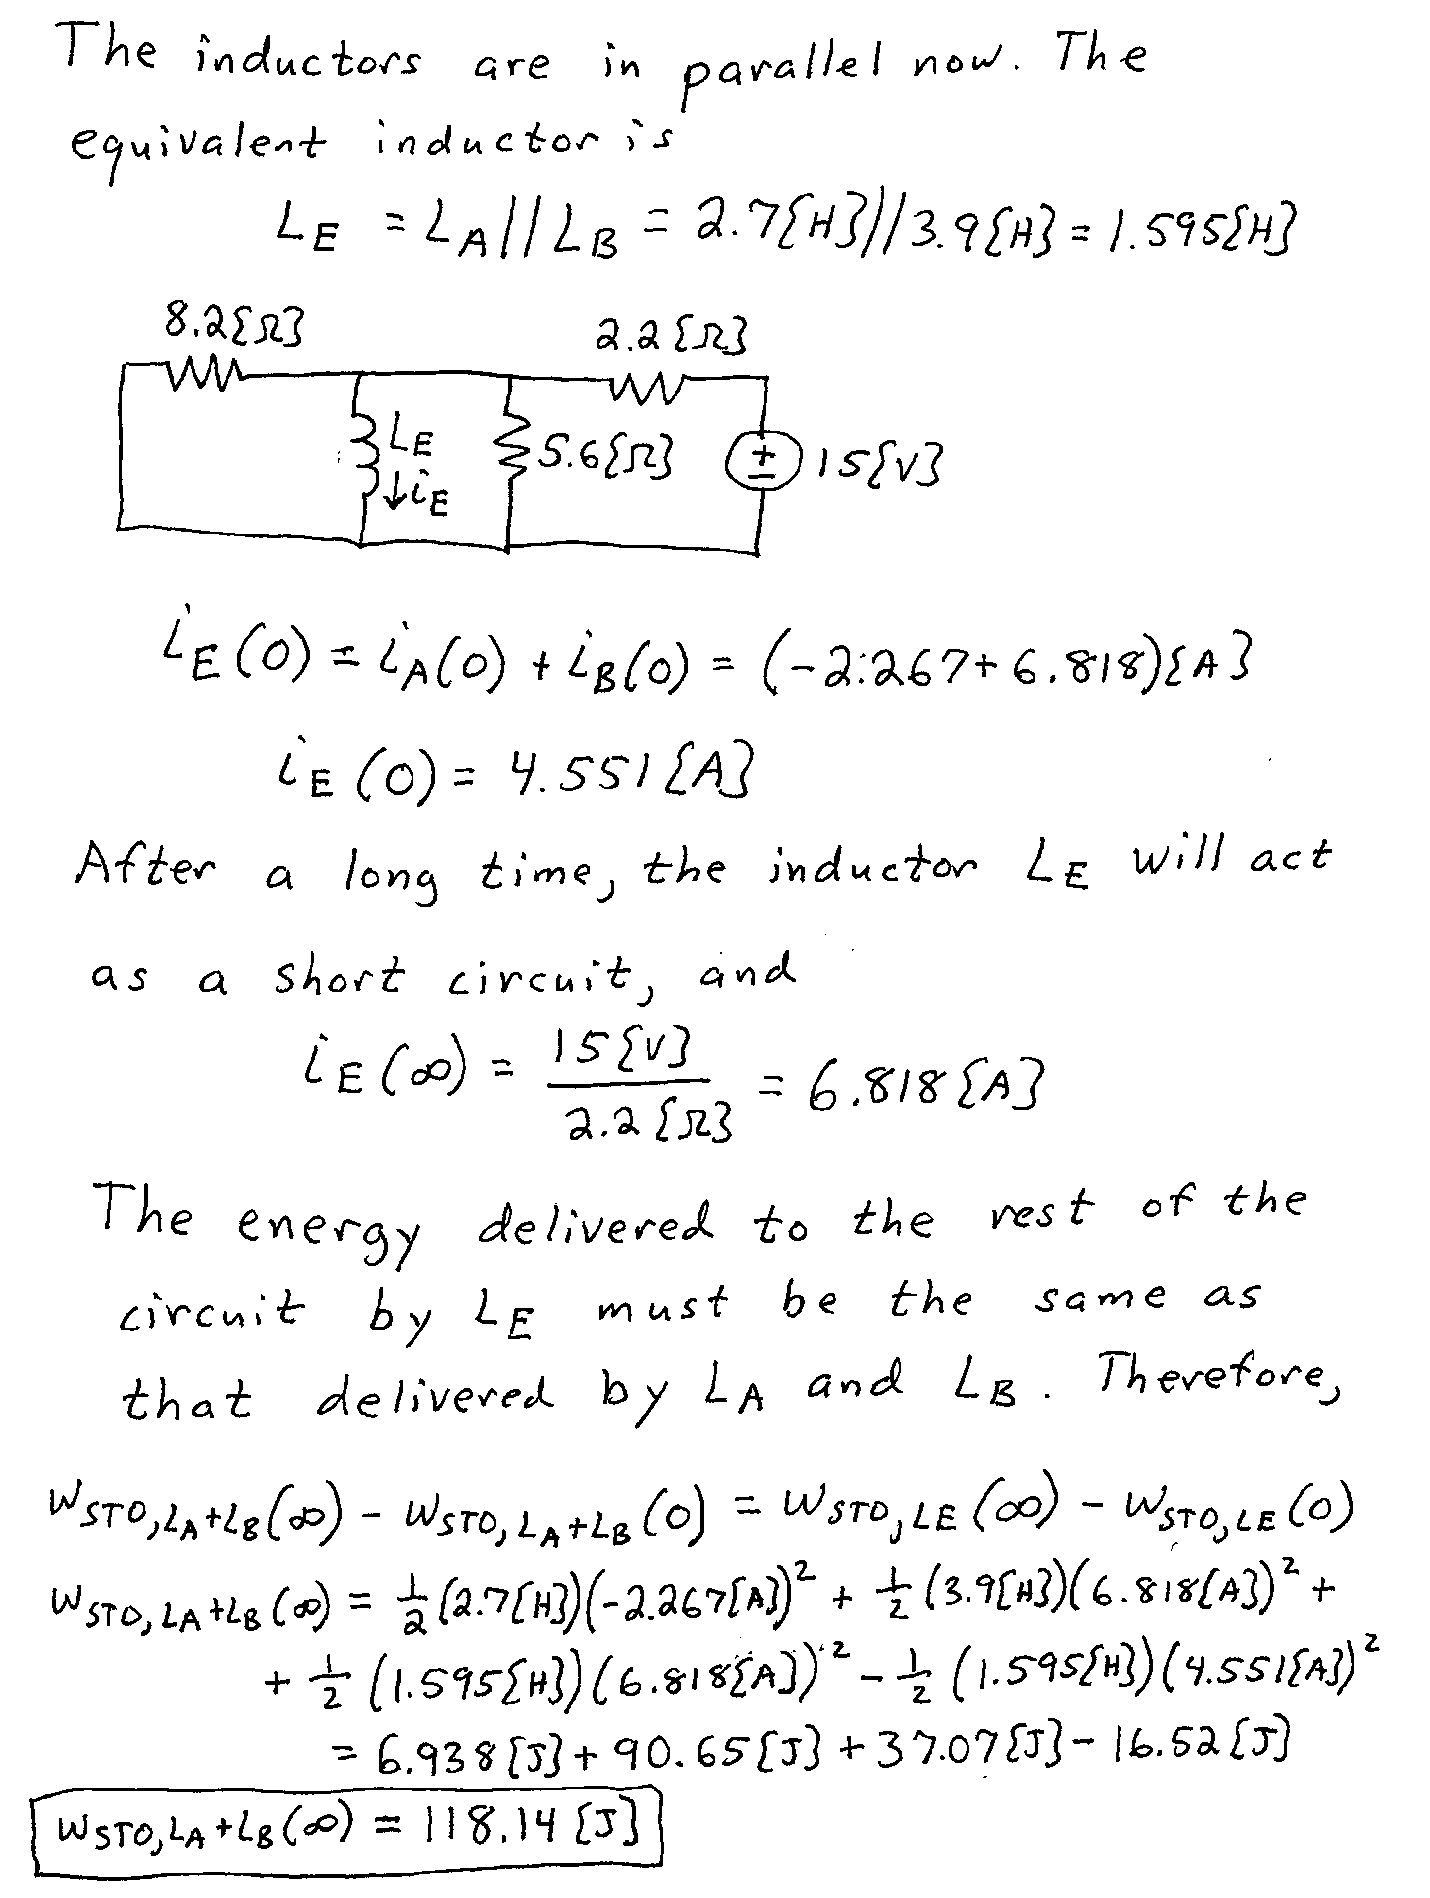 The inductors are in parallel now. The
equivalent inductor is
L_E = L_A // L_B = 2.7{H}//3.9{H} = 1.595{H}
8.2{Ω} 2.2{Ω}
L_E 5.6{Ω} + - 15{V}
↓i_E
i_E(0) = i_A(0) + i_B(0) = (-2.267+6.818){A}
i_E(0) = 4.551{A}
After a long time, the inductor L_E will act
as a short circuit, and
i_E(∞) = 15{V} / 2.2{Ω} = 6.818{A}
The energy delivered to the rest of the
circuit by L_E must be the same as
that delivered by L_A and L_B. Therefore,
W_STO,LA+LB(∞) - W_STO,LA+LB(0) = W_STO,LE(∞) - W_STO,LE(0)
W_STO,LA+LB(∞) = ½(2.7[H])(-2.267[A])² + ½(3.9[H])(6.818[A])² +
+ ½(1.595[H])(6.818[A])² - ½(1.595[H])(4.551[A])²
= 6.938[J] + 90.65[J] + 37.07[J] - 16.52[J]
W_STO,LA+LB(∞) = 118.14[J]